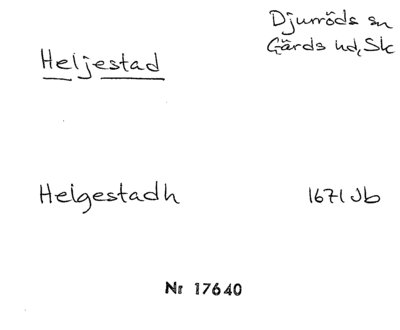 Djurröds sn
Gärds hd, Sk
Heljestad
Helgestadh 1671 Jb
Nr 17640